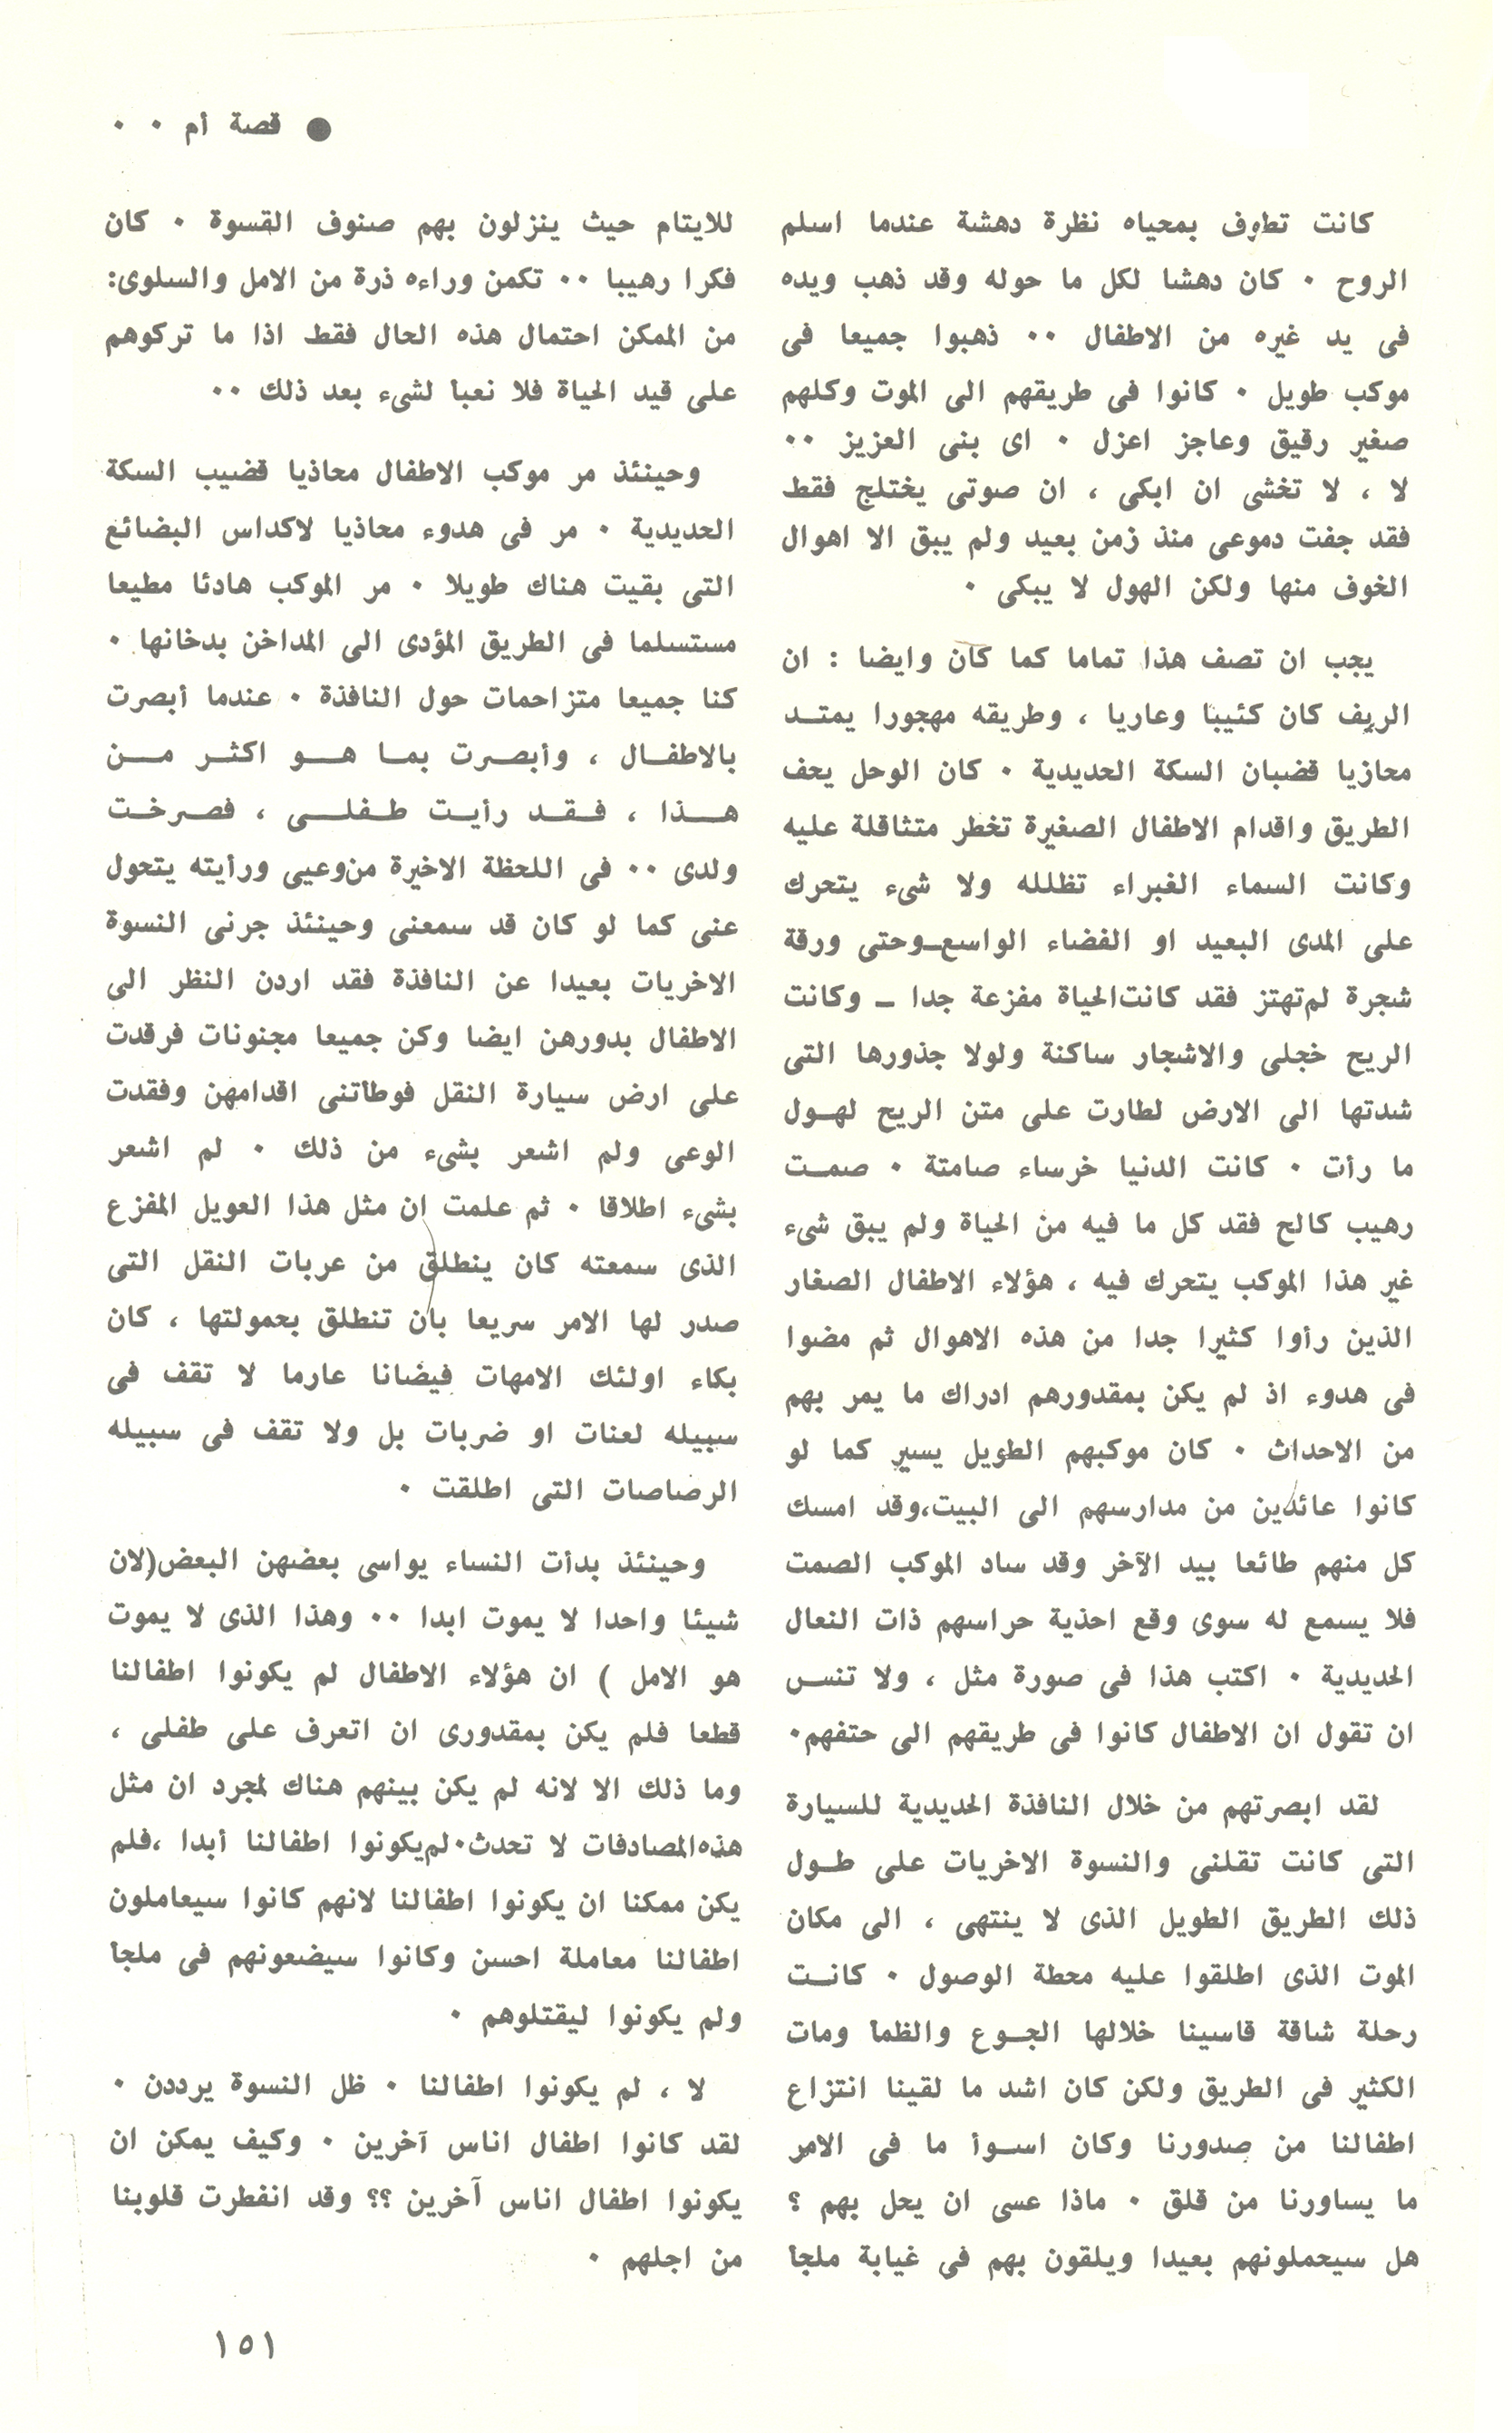 ● قصة أم ٠ ٠
كانت تطوف بمحياه نظرة دهشة عندما اسلم
الروح ٠ كان دهشا لكل ما حوله وقد ذهب ويده
فى يد غيره من الاطفال ٠٠ ذهبوا جميعا فى
موكب طويل ٠ كانوا فى طريقهم الى الموت وكلهم
صغير رقيق وعاجز اعزل ٠ اى بنى العزيز ٠٠
لا ، لا تخشى ان ابكى ، ان صوتى يختلج فقط
فقد جفت دموعى منذ زمن بعيد ولم يبق الا اهوال
الخوف منها ولكن الهول لا يبكى ٠
يجب ان تصف هذا تماما كما كان وايضا : ان
الريف كان كئيبا وعاريا ، وطريقه مهجورا يمتــد
محازيا قضبان السكة الحديدية ٠ كان الوحل يحف
الطريق واقدام الاطفال الصغيرة تخطر متثاقلة عليه
وكانت السماء الغبراء تظلله ولا شىء يتحرك
على المدى البعيد او الفضاء الواسع ــ وحتى ورقة
شجرة لم تهتز فقد كانت الحياة مفزعة جدا ــ وكانت
الريح خجلى والاشجار ساكنة ولولا جذورها التى
شدتها الى الارض لطارت على متن الريح لهــول
ما رأت ٠ كانت الدنيا خرساء صامتة ٠ صمــت
رهيب كالح فقد كل ما فيه من الحياة ولم يبق شىء
غير هذا الموكب يتحرك فيه ، هؤلاء الاطفال الصغار
الذين رأوا كثيرا جدا من هذه الاهوال ثم مضوا
فى هدوء اذ لم يكن بمقدورهم ادراك ما يمر بهم
من الاحداث ٠ كان موكبهم الطويل يسير كما لو
كانوا عائدين من مدارسهم الى البيت،وقد امسك
كل منهم طائعا بيد الآخر وقد ساد الموكب الصمت
فلا يسمع له سوى وقع احذية حراسهم ذات النعال
الحديدية ٠ اكتب هذا فى صورة مثل ، ولا تنســ
ان تقول ان الاطفال كانوا فى طريقهم الى حتفهم٠
لقد ابصرتهم من خلال النافذة الحديدية للسيارة
التى كانت تقلنى والنسوة الاخريات على طــول
ذلك الطريق الطويل الذى لا ينتهى ، الى مكان
الموت الذى اطلقوا عليه محطة الوصول ٠ كانــت
رحلة شاقة قاسينا خلالها الجــوع والظمأ ومات
الكثير فى الطريق ولكن كان اشد ما لقينا انتزاع
اطفالنا من صدورنا وكان اســوأ ما فى الامر
ما يساورنا من قلق ٠ ماذا عسى ان يحل بهم ؟
هل سيحملونهم بعيدا ويلقون بهم فى غيابة ملجأ
للايتام حيث ينزلون بهم صنوف القسوة ٠ كان
فكرا رهيبا ٠٠ تكمن وراءه ذرة من الامل والسلوى:
من الممكن احتمال هذه الحال فقط اذا ما تركوهم
على قيد الحياة فلا نعبأ لشىء بعد ذلك ٠٠
وحينئذ مر موكب الاطفال محاذيا قضيب السكة
الحديدية ٠ مر فى هدوء محاذيا لاكداس البضائع
التى بقيت هناك طويلا ٠ مر الموكب هادئا مطيعا
مستسلما فى الطريق المؤدى الى المداخن بدخانها ٠
كنا جميعا متزاحمات حول النافذة ٠ عندما أبصرت
بالاطفــال ، وأبصــرت بمــا هــو اكثــر مــن
هــذا ، فــقــد رأيــت طــفلــى ، فصــرخــت
ولدى ٠٠ فى اللحظة الاخيرة من وعيى ورأيته يتحول
عنى كما لو كان قد سمعنى وحينئذ جرنى النسوة
الاخريات بعيدا عن النافذة فقد اردن النظر الى
الاطفال بدورهن ايضا وكن جميعا مجنونات فرقدت
على ارض سيارة النقل فوطأتنى اقدامهن وفقدت
الوعى ولم اشعر بشىء من ذلك ٠ لم اشعر
بشىء اطلاقا ٠ ثم علمت ان مثل هذا العويل المفزع
الذى سمعته كان ينطلق من عربات النقل التى
صدر لها الامر سريعا بأن تنطلق بحمولتها ، كان
بكاء اولئك الامهات فيضانا عارما لا تقف فى
سبيله لعنات او ضربات بل ولا تقف فى سبيله
الرصاصات التى اطلقت ٠
وحينئذ بدأت النساء يواسى بعضهن البعض(لان
شيئا واحدا لا يموت ابدا ٠٠ وهذا الذى لا يموت
هو الامل ) ان هؤلاء الاطفال لم يكونوا اطفالنا
قطعا فلم يكن بمقدورى ان اتعرف على طفلى ،
وما ذلك الا لانه لم يكن بينهم هناك لمجرد ان مثل
هذه المصادفات لا تحدث٠لم يكونوا اطفالنا أبدا ،فلم
يكن ممكنا ان يكونوا اطفالنا لانهم كانوا سيعاملون
اطفالنا معاملة احسن وكانوا سيضعونهم فى ملجأ
ولم يكونوا ليقتلوهم ٠
لا ، لم يكونوا اطفالنا ٠ ظل النسوة يرددن ٠
لقد كانوا اطفال اناس آخرين ٠ وكيف يمكن ان
يكونوا اطفال اناس آخرين ؟؟ وقد انفطرت قلوبنا
من اجلهم ٠
١٥١